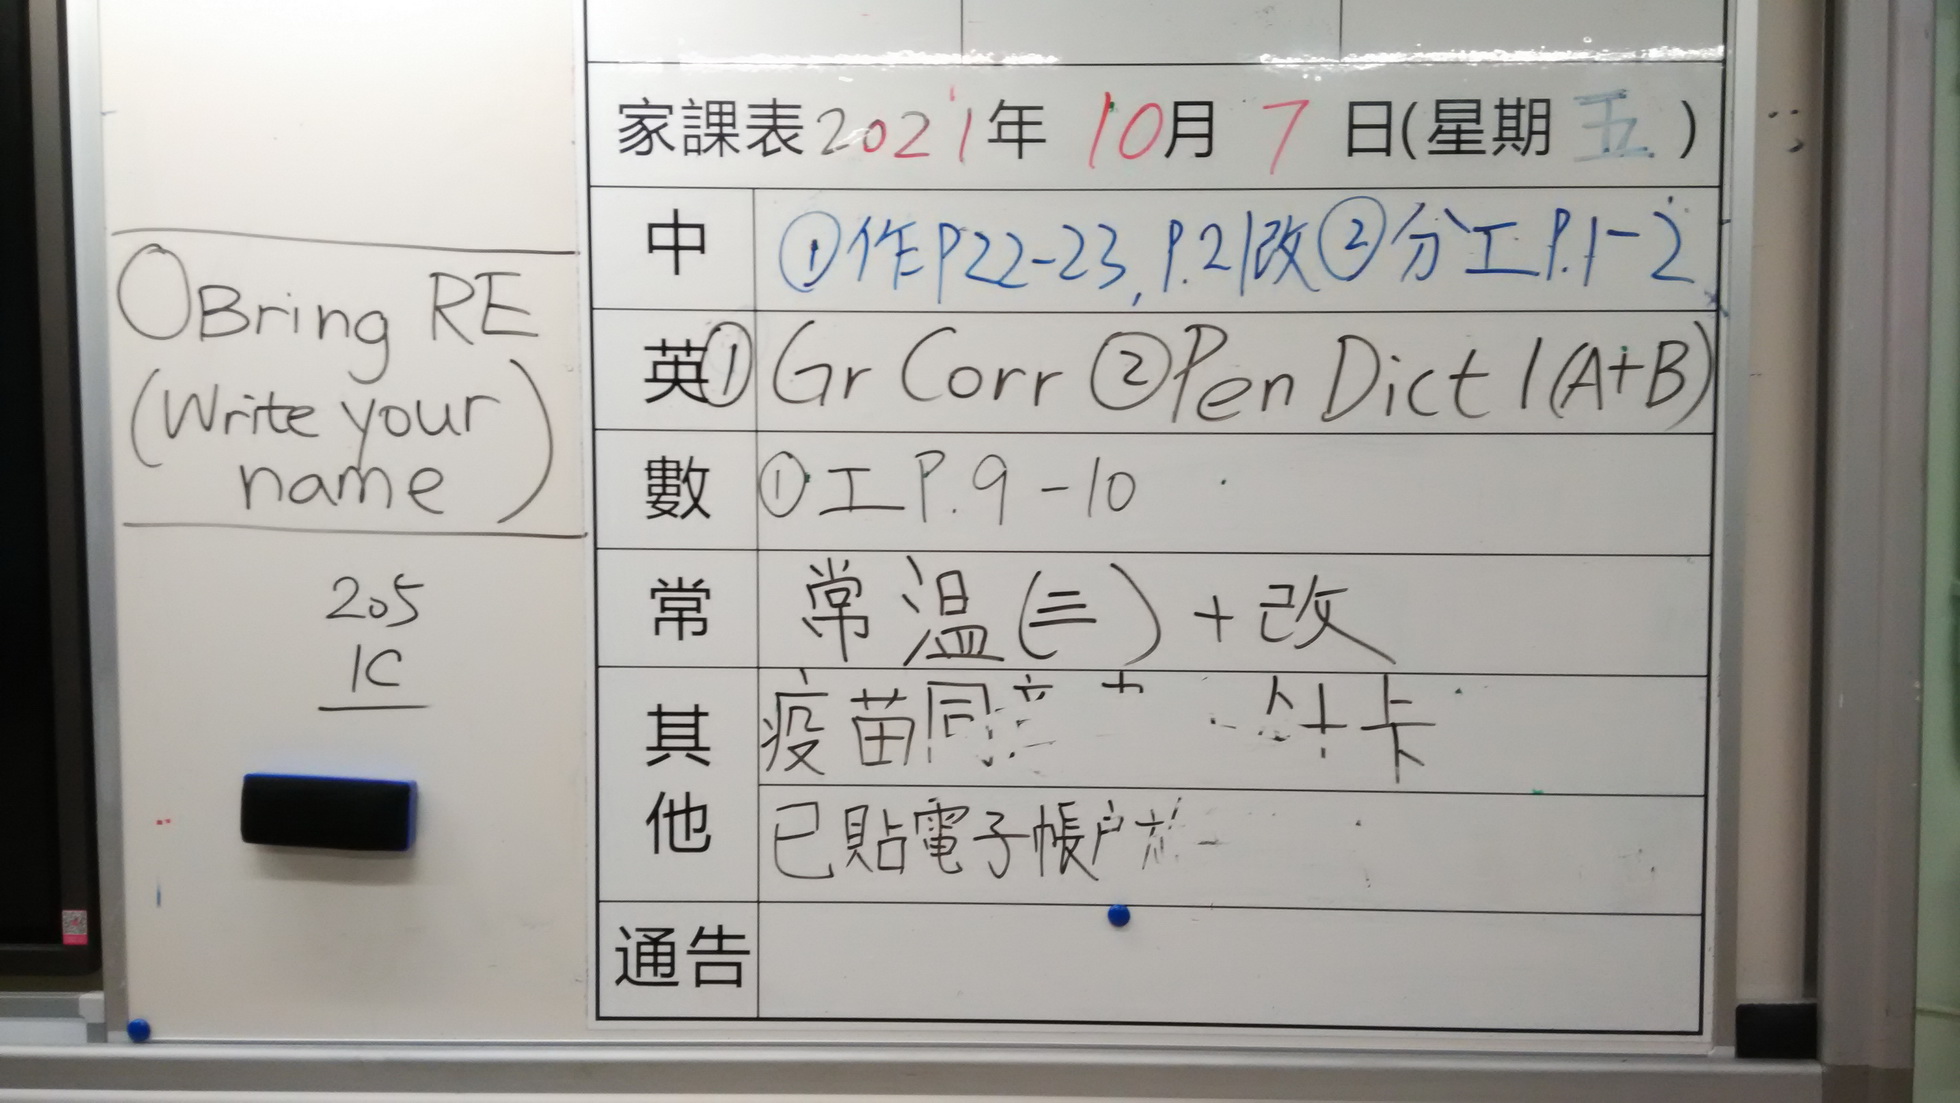 家課表2021年 10月 7 日(星期 五 )
中 ①作P22-23, P.21改②分工P.1-2
英①Gr Corr ②Pen Dict 1(A+B)
數 ①工P.9-10
常 常溫(三)+改
其他 疫苗同 卡
已貼電子帳户
通告
Bring RE
(Write your
name)
205
1C